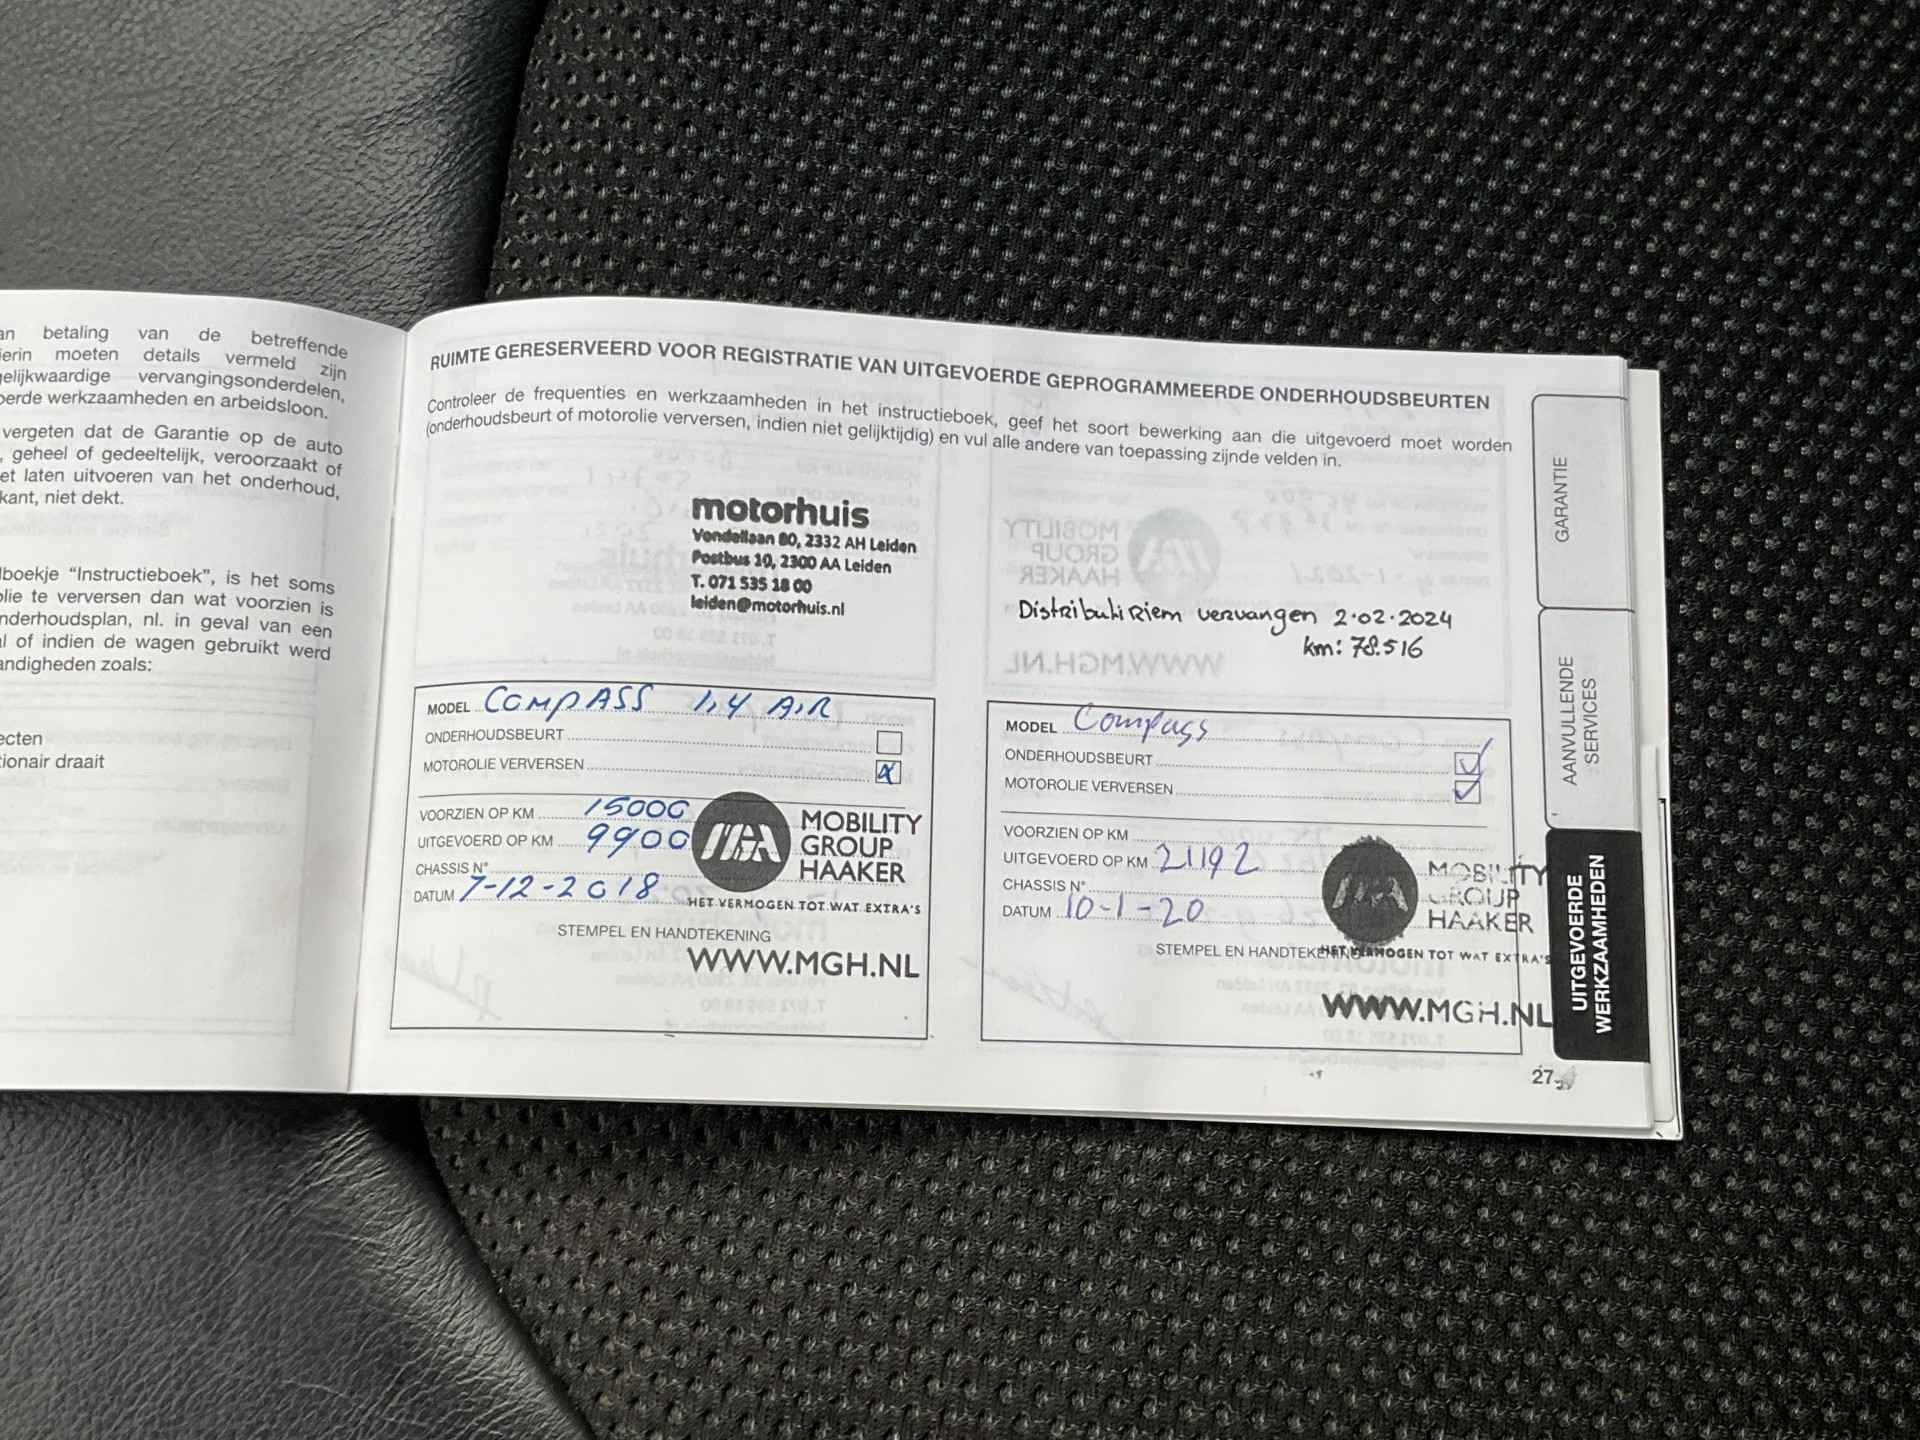 an betaling van de betreffende
ierin moeten details vermeld zijn
gelijkwaardige vervangingsonderdelen,
oerde werkzaamheden en arbeidsloon.
vergeten dat de Garantie op de auto
, geheel of gedeeltelijk, veroorzaakt of
et laten uitvoeren van het onderhoud,
kant, niet dekt.
lboekje “Instructieboek”, is het soms
olie te verversen dan wat voorzien is
nderhoudsplan, nl. in geval van een
al of indien de wagen gebruikt werd
andigheden zoals:
ecten
tionair draait
RUIMTE GERESERVEERD VOOR REGISTRATIE VAN UITGEVOERDE GEPROGRAMMEERDE ONDERHOUDSBEURTEN
Controleer de frequenties en werkzaamheden in het instructieboek, geef het soort bewerking aan die uitgevoerd moet worden
(onderhoudsbeurt of motorolie verversen, indien niet gelijktijdig) en vul alle andere van toepassing zijnde velden in.
motorhuis
Vondellaan 80, 2332 AH Leiden
Postbus 10, 2300 AA Leiden
T. 071 535 18 00
leiden@motorhuis.nl
MODEL COMPASS 1,4 AIR
ONDERHOUDSBEURT
MOTOROLIE VERVERSEN X
VOORZIEN OP KM 15000
UITGEVOERD OP KM 9900
CHASSIS N°
DATUM 7-12-2018
MOBILITY
GROUP
HAAKER
HET VERMOGEN TOT WAT EXTRA'S
STEMPEL EN HANDTEKENING
WWW.MGH.NL
Distributi Riem vervangen 2.02.2024
km: 78.516
MODEL Compass
ONDERHOUDSBEURT
MOTOROLIE VERVERSEN
VOORZIEN OP KM
UITGEVOERD OP KM 21192
CHASSIS N°
DATUM 10-1-20
MOBILITY
GROUP
HAAKER
HET VERMOGEN TOT WAT EXTRA'S
STEMPEL EN HANDTEKENING
WWW.MGH.NL
GARANTIE
AANVULLENDE
SERVICES
UITGEVOERDE
WERKZAAMHEDEN
27